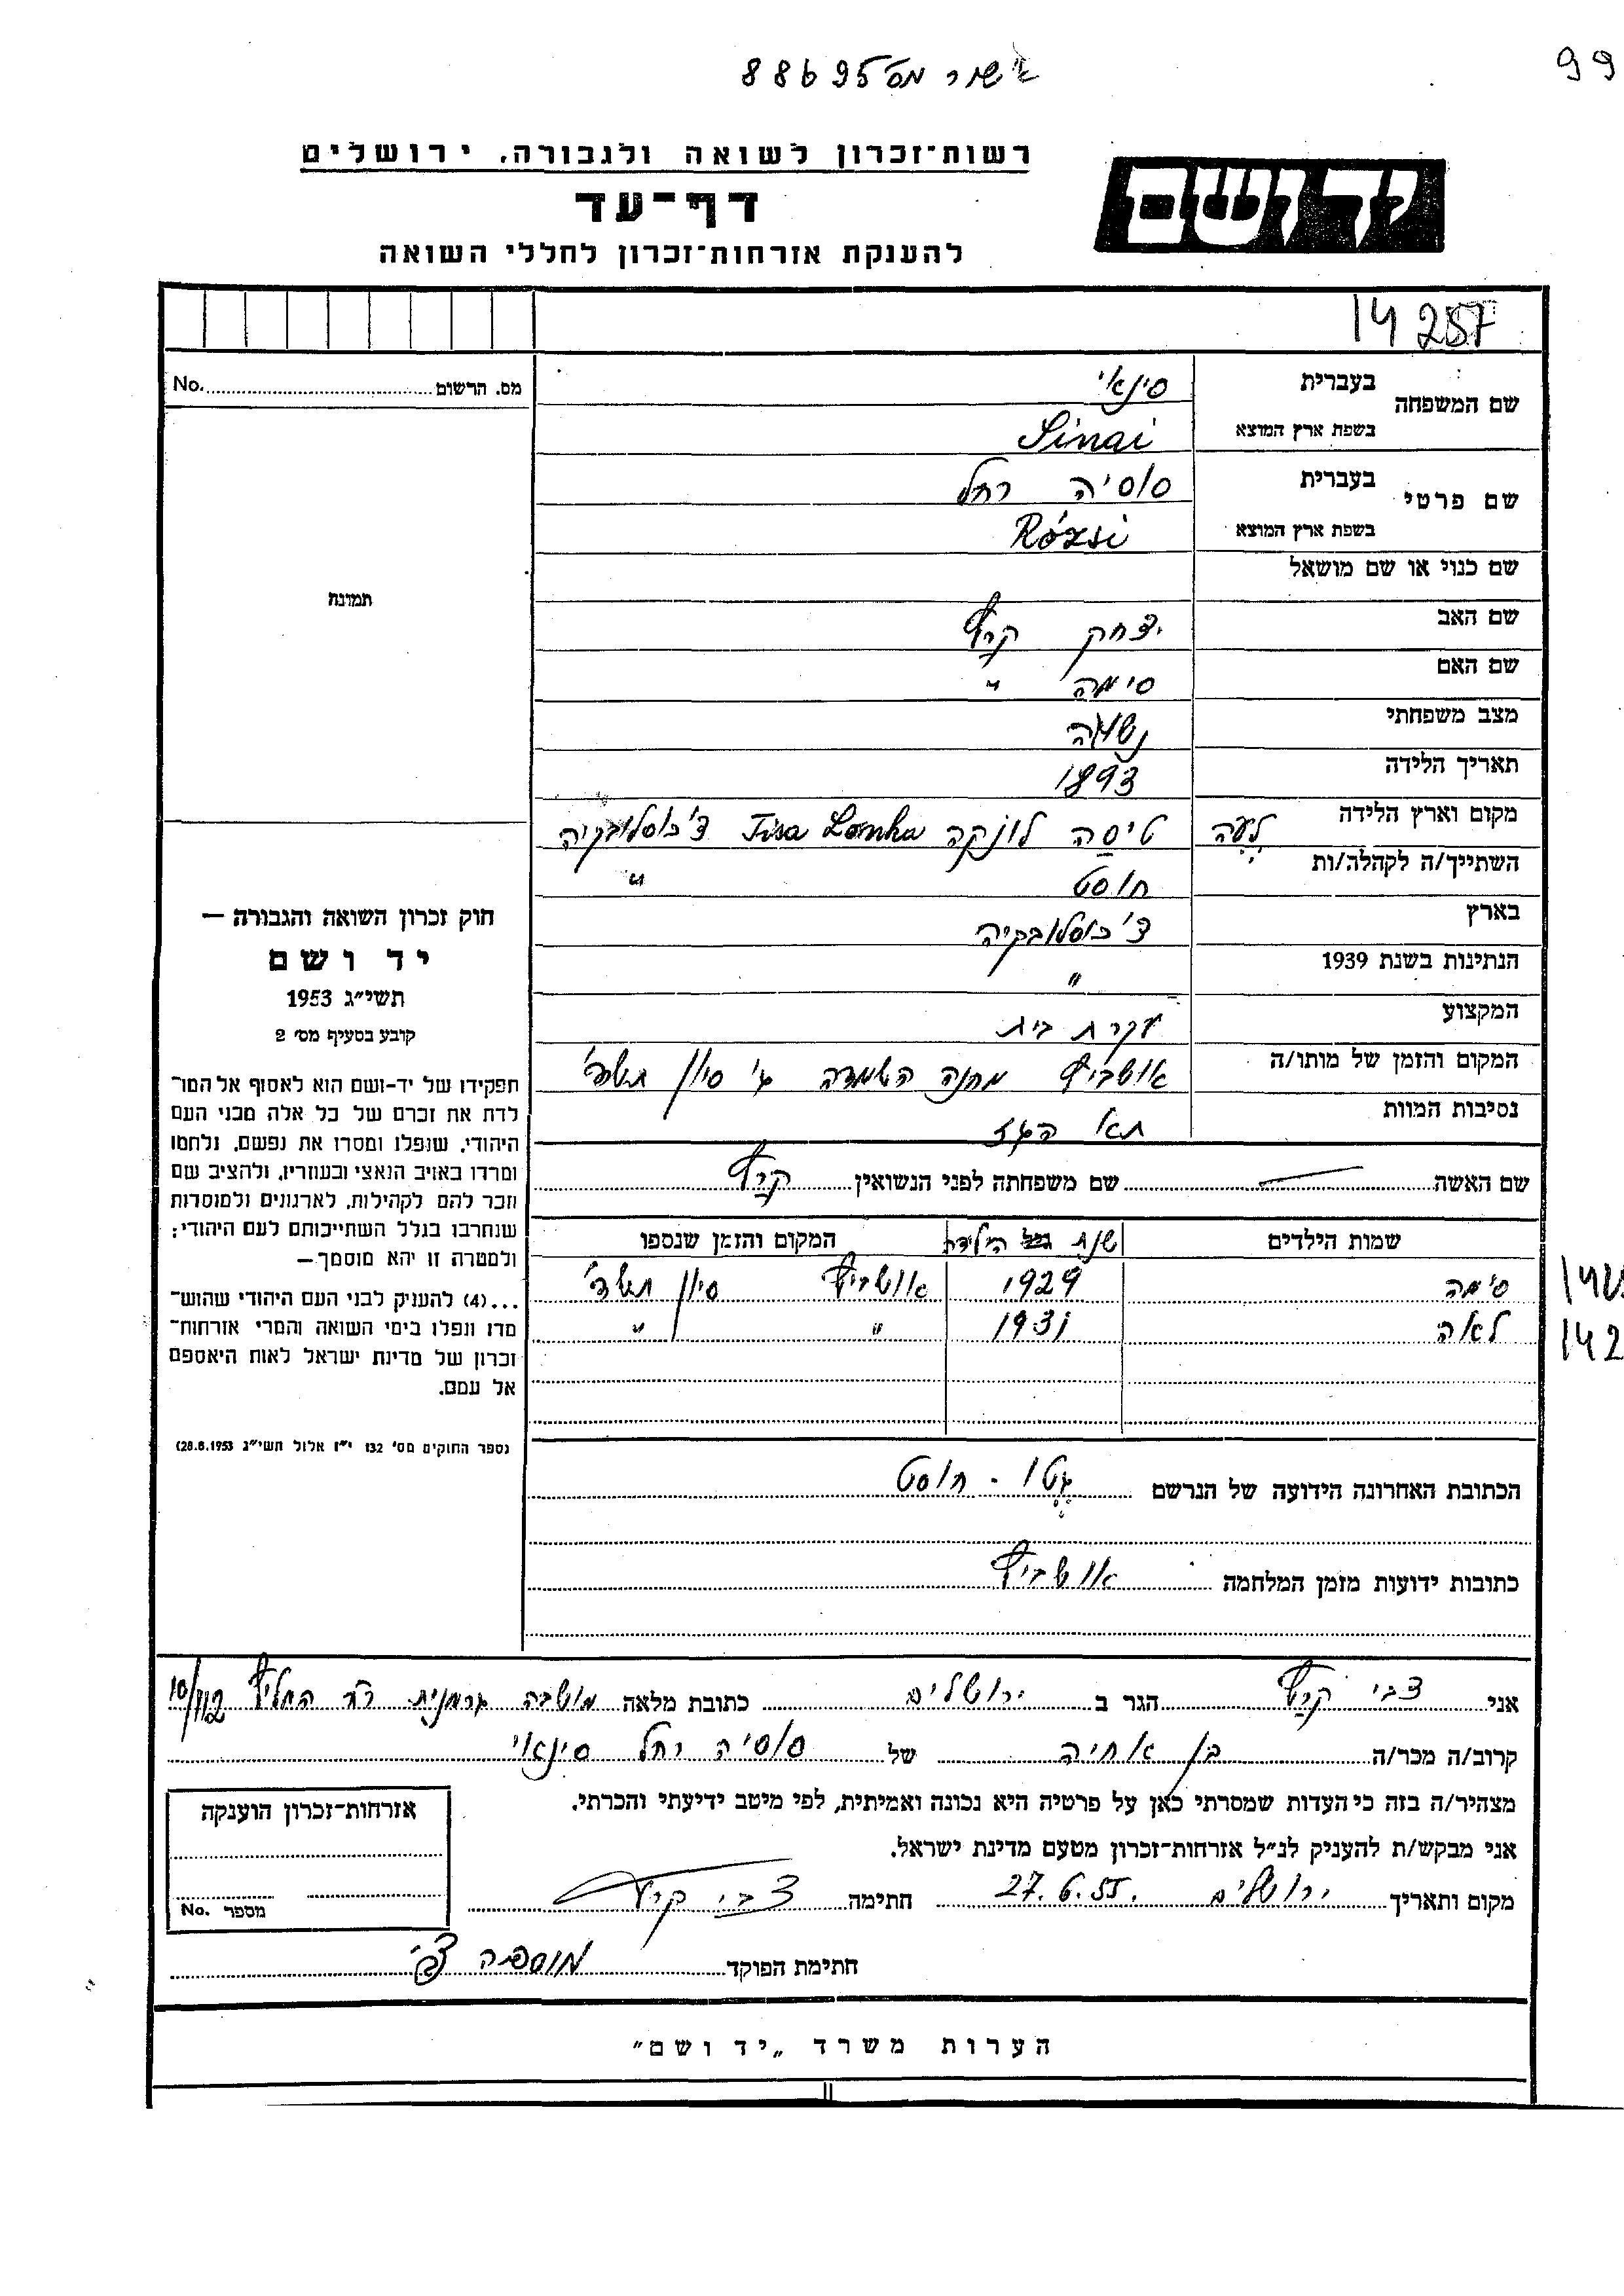 אישור מס' 88695
99
רשות־זכרון לשואה ולגבורה, ירושלים
יד ושם
דף־עד
להענקת אזרחות־זכרון לחללי השואה
14 257
מס. הרשום No.
שם המשפחה בעברית סינאי
בשפת ארץ המוצא Sinai
שם פרטי בעברית סוסיה רחל
בשפת ארץ המוצא Rózsi
שם כנוי או שם מושאל
שם האב יצחק קרץ
שם האם סימה "
מצב משפחתי נשואה
תאריך הלידה 1893
מקום וארץ הלידה טיסה לונקה Tisa Lonka צ'כוסלובקיה
השתייך/ה לקהלה/ות חוסט "
בארץ צ'כוסלובקיה
הנתינות בשנת 1939 "
המקצוע עקרת בית
המקום והזמן של מותו/ה אושביץ מחנה השמדה ג' סיון תש"ד
נסיבות המוות תא הגז
שם האשה — שם משפחתה לפני הנשואין קרץ
שמות הילדים שנת הילידה המקום והזמן שנספו
סימה 1929 אושביץ סיון תש"ד
לאה 1931 " "
142
הכתובת האחרונה הידועה של הנרשם גטו - חוסט
כתובות ידועות מזמן המלחמה אושביץ
תמונה
חוק זכרון השואה והגבורה —
יד ושם
תשי״ג 1953
קובע בסעיף מס' 2
תפקידו של יד-ושם הוא לאסוף אל המו־
לדת את זכרם של כל אלה מבני העם
היהודי, שנפלו ומסרו את נפשם, נלחמו
ומרדו באויב הנאצי ובעוזריו, ולהציב שם
וזכר להם לקהילות, לארגונים ולמוסדות
שנחרבו בגלל השתייכותם לעם היהודי;
ולמטרה זו יהא מוסמך —
...(4) להענית לבני העם היהודי שהוש־
מדו ונפלו בימי השואה והמרי אזרחות־
זכרון של מדינת ישראל לאות היאספם
אל עמם.
נספר החוקים מס' 132 י״ז אלול תשי״ג 28.8.1953)
אני צבי קרץ הגר ב ירושלים כתובת מלאה מושבה גרמנית רח' המליץ 10/112
קרוב/ה מכר/ה בן אחיה של סוסיה רחל סינאי
מצהיר/ה בזה כי העדות שמסרתי כאן על פרטיה היא נכונה ואמיתית, לפי מיטב ידיעתי והכרתי.
אני מבקש/ת להעניק לנ״ל אזרחות־זכרון מטעם מדינת ישראל.
מקום ותאריך ירושלים 27.6.55. חתימה צבי קרץ
חתימת הפוקד
אזרחות־זכרון הוענקה
מספר No.
הערות משרד „יד ושם"